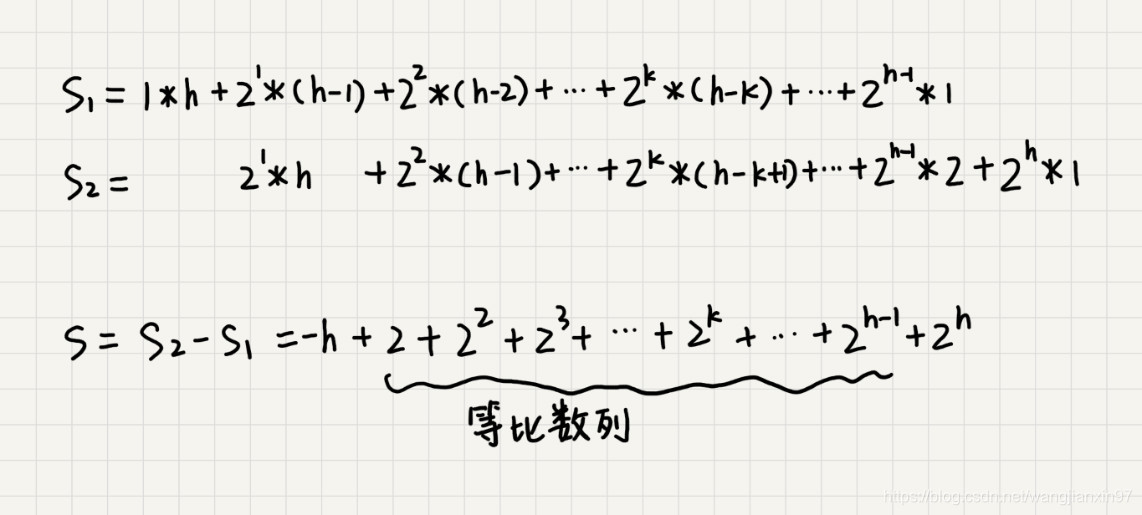 S₁ = 1*h + 2¹*(h-1) + 2²*(h-2) + ... + 2ᵏ*(h-k) + ... + 2ʰ⁻¹*1
S₂ = 2¹*h + 2²*(h-1) + ... + 2ᵏ*(h-k+1) + ... + 2ʰ⁻¹*2 + 2ʰ*1
S = S₂-S₁ = -h + 2 + 2² + 2³ + ... + 2ᵏ + ... + 2ʰ⁻¹ + 2ʰ
等比数列
https://blog.csdn.net/wangjianxin97